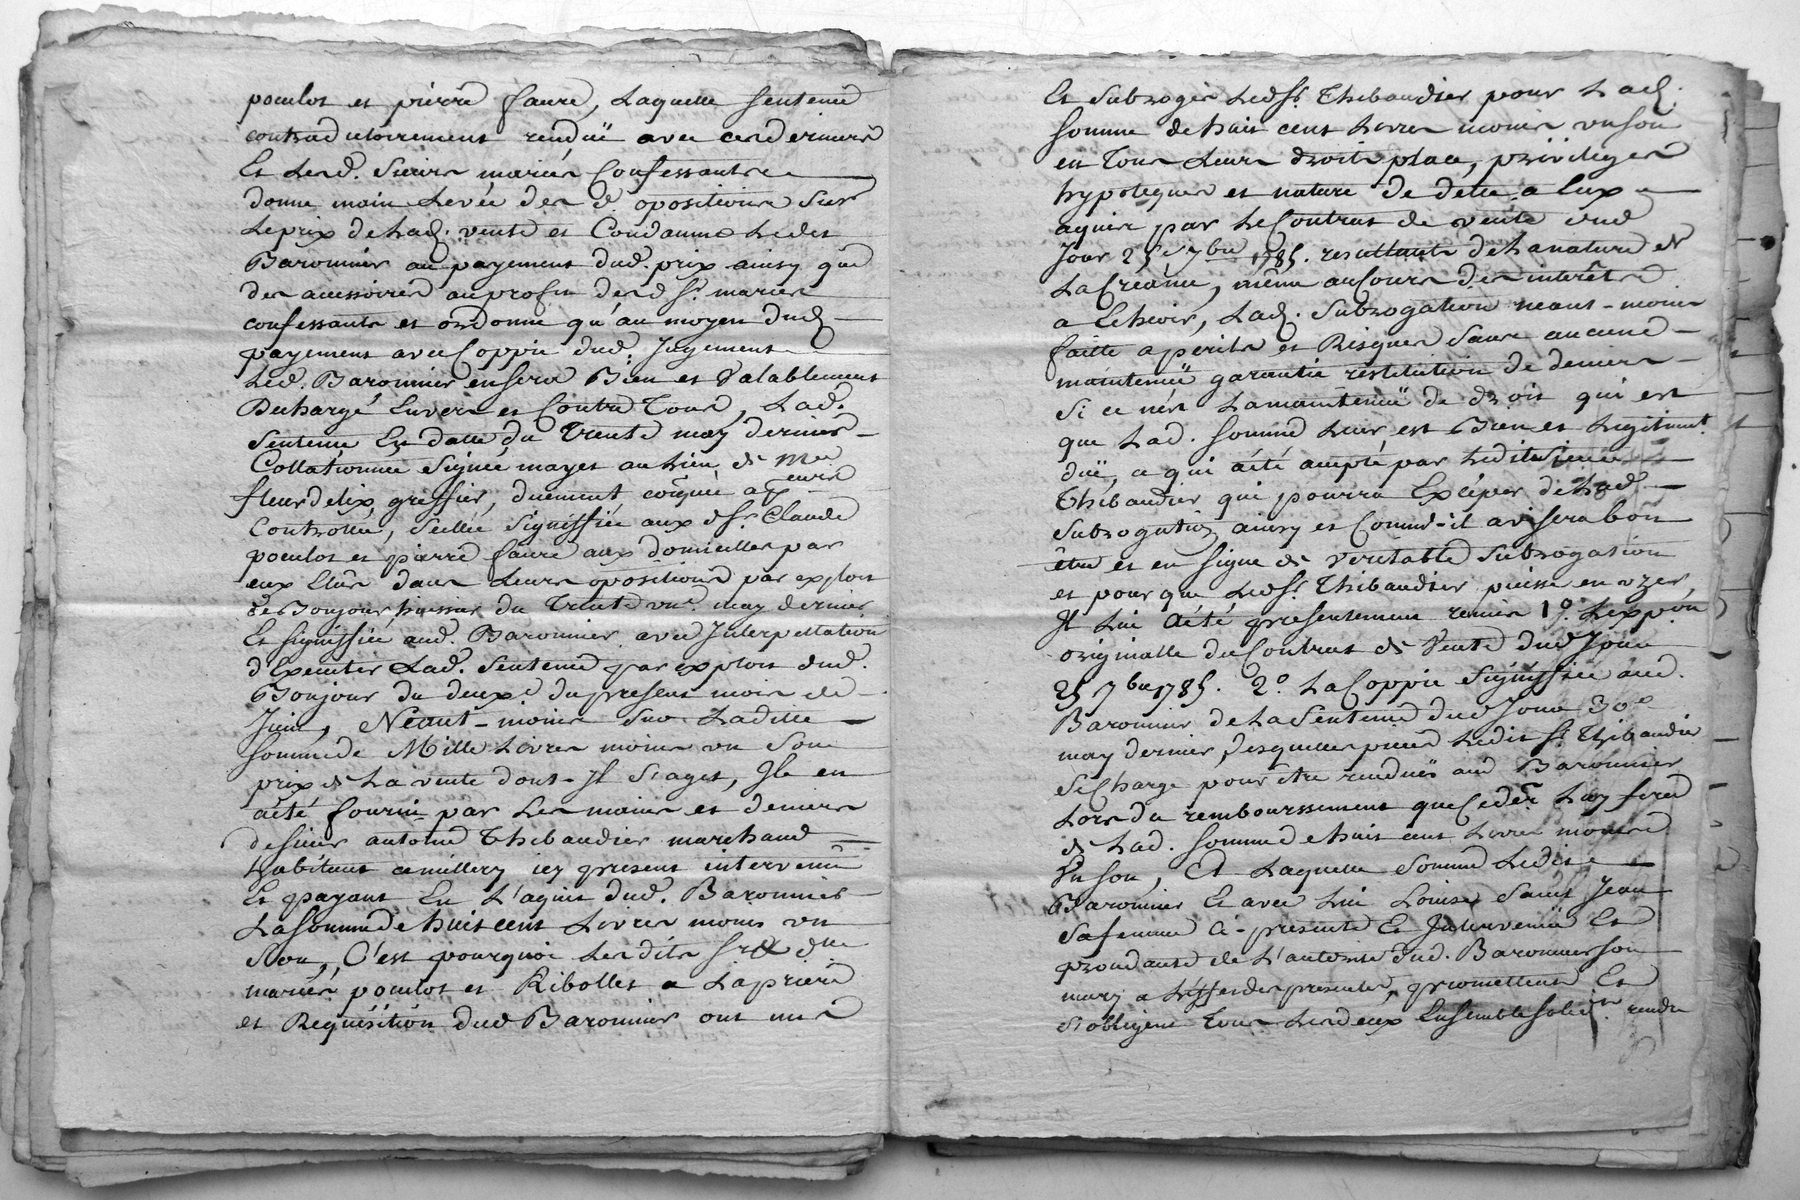 poculot et pierre faure, Laquelle sentence
contradictoirement rendüe avec ces derniers
Et Lesd. Sieurs mariés Confessants
donne main Levée des d opositions Sur
Le prix de Lad. vente et Condanne Ledit
Baronnier au payement dud. prix ainsy que
des accessoires au profit desd Srs. mariés
confessants et ordonne qu'au moyen dud
payement avec Coppie dud. Jugement
Led. Baronnier en sera Bien et Valablement
Dechargé Envers et Contre Tous, Lad.
Sentence En datte du Trente may dernier
Collationnée Signée mayet au Lieu de Me
fleurdelix greffier, duement
Controllée, Scellée Signiffiée aux d Srs Claude
poculot et pierre faure aux domicilles par
eux Elus dans Leurs opositions par exploit
de Bonjour huissier du Trente un may dernier
Et signiffiée aud. Baronnier avec Interpellation
d'Executer Lad. Sentence par exploit dud.
Bonjour du deuxe du present mois de
Juin, Néant-moins Sur Laditte
somme de Mille Livres moins un Sou
prix de La vente dont-Il S'aget, Il en
a été fourni par Les mains et deniers
de sieur antoine Thibaudier marchand
habitant a millery icy present intervenu
Et payant En L'aquit dud. Baronnier
La somme de huit cent Livres moins un
Sou, C'est pourquoi Lesdits Sr et dme
mariés poculot et Ribollet a La priere
et Requisition dud Baronnier ont mis
Et Subroger Led Sr. Thibaudier pour Lad.
somme de huit cent Livres moins un sou
en Tous Leurs droits place, privileges
hypoteques et nature de dette a Eux
aquis par Le Contrat de vente dud
Jour 25e 7bre 1785. resultants de La nature de
La Creance, même au Cours des interêts
a Echeoir, Lad. Subrogation neant-moins
faitte a perils et Risques Sans aucune
maintenüe garantie restitution de deniers
Si ce n'est La maintenüe de droit qui est
que Lad. somme Leur est Bien et Legitimt.
düe, ce qui a été accepté par Ledit sieur
Thibaudier qui pourra Exciper de Lad
Subrogation ainsy et Comme-il avisera bon
être et en signe de veritable Subrogation
et pour que Led Sr. Thibaudier puisse en uzer
Il Lui a été presentement remis 1o. L'expon
originalle du Contrat de Vente dud Jour
25 7bre 1785. 2o. La Coppie Signiffiée aud.
Baronnier de La Sentence dud Jour 30e
may dernier, desquelles pieces Ledit Sr Thibaudier
se charge pour être rendües aud Baronnier
Lors du remboursement que Ce der Luy fera
de Lad. somme de huit cent Livres moins
Un sou, A Laquelle Somme Ledit
Baronnier Et avec Lui Louise Saint Jean
Sa femme Ci-presente Et Intervenüe Et
procedante de L'autorité dud. Baronnier son
mary a L'effet des presentes, promettent Et
S'obligent Tous Les deux Ensemble solidt. rendre